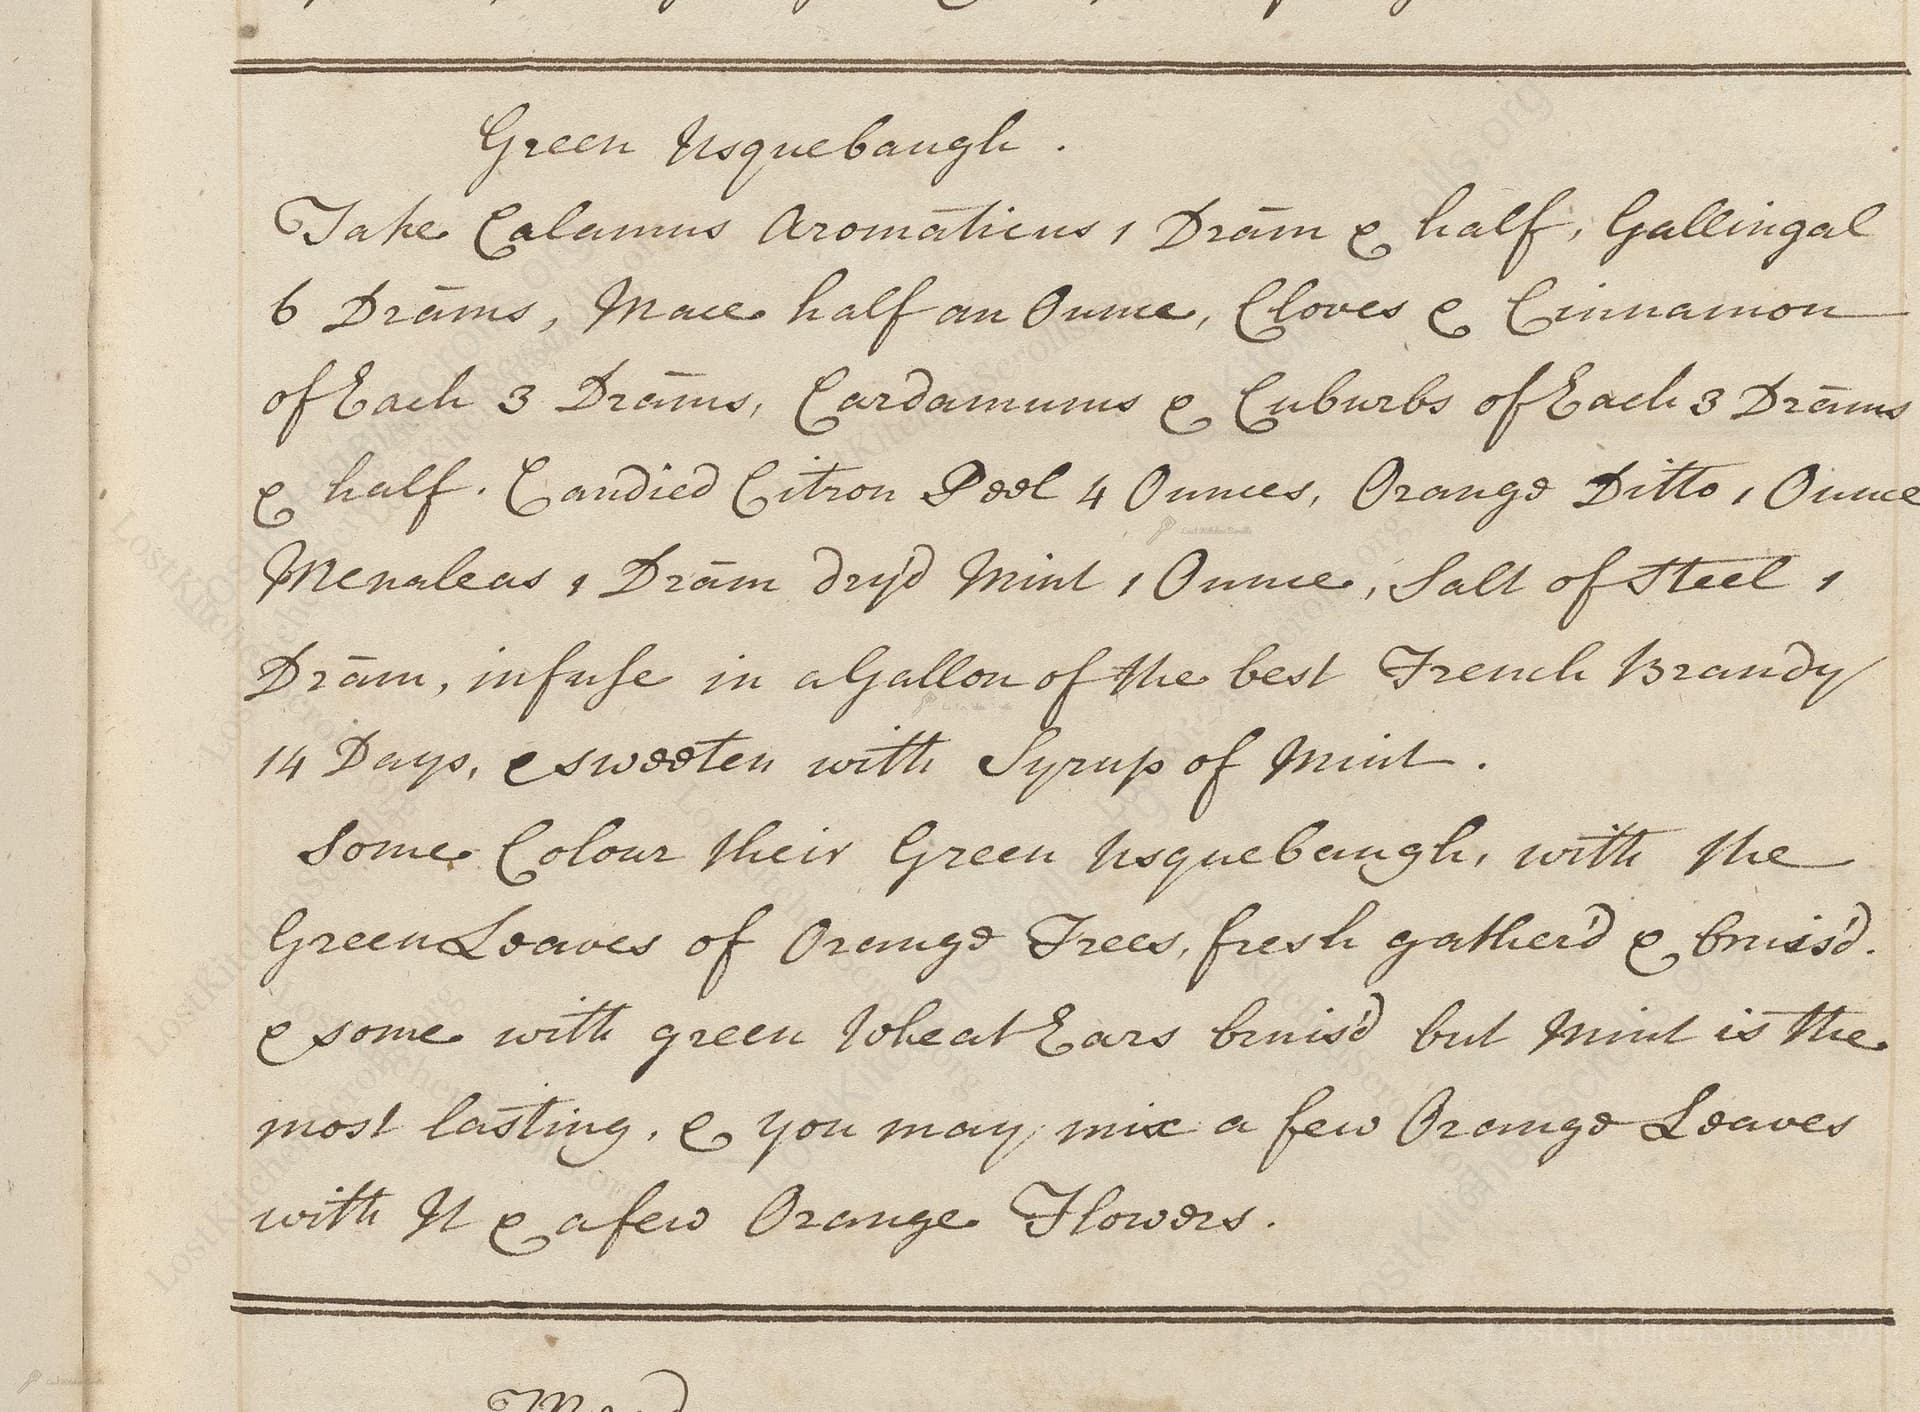 Green Usquebaugh.
Take Calamus Aromaticus 1 Drām & half, Gallingal
6 Drāms, Mace half an Ounce, Cloves & Cinnamon
of Each 3 Drāms, Cardamums & Cuburbs of Each 3 Drāms
& half. Candied Citron Peel 4 Ounces, Orange Ditto 1 Ounce
Menaleas 1 Drām dry'd Mint 1 Ounce, Salt of Steel 1
Drām, infuse in a Gallon of the best French Brandy
14 Days, & sweeten with Syrup of Mint.
Some Colour their Green Usquebaugh, with the
Green Leaves of Orange Trees, fresh gather'd & bruis'd.
& some with green Wheat Ears bruis'd but Mint is the
most lasting, & you may mix a few Orange Leaves
with It & a few Orange Flowers.